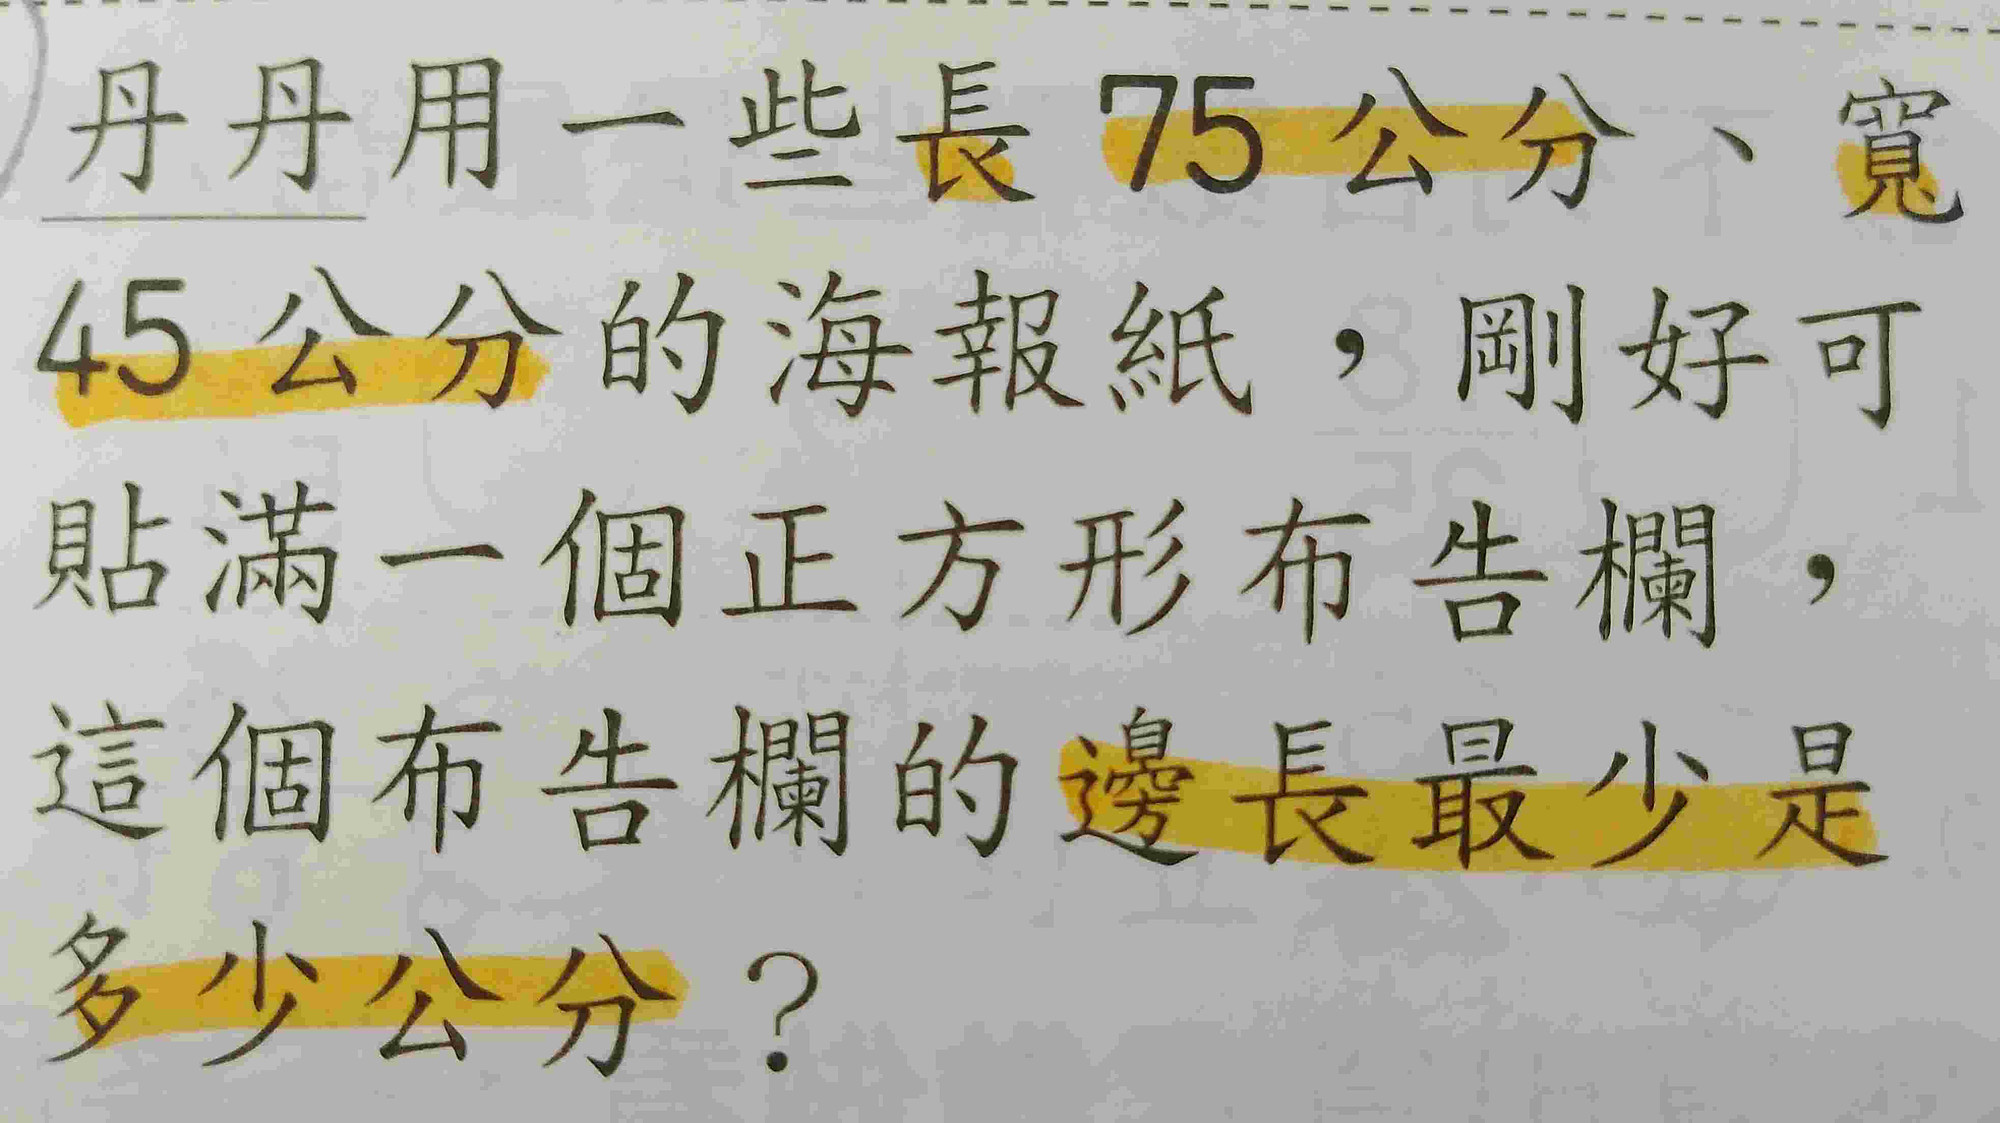 丹丹用一些長75公分、寬
45公分的海報紙，剛好可
貼滿一個正方形布告欄，
這個布告欄的邊長最少是
多少公分？